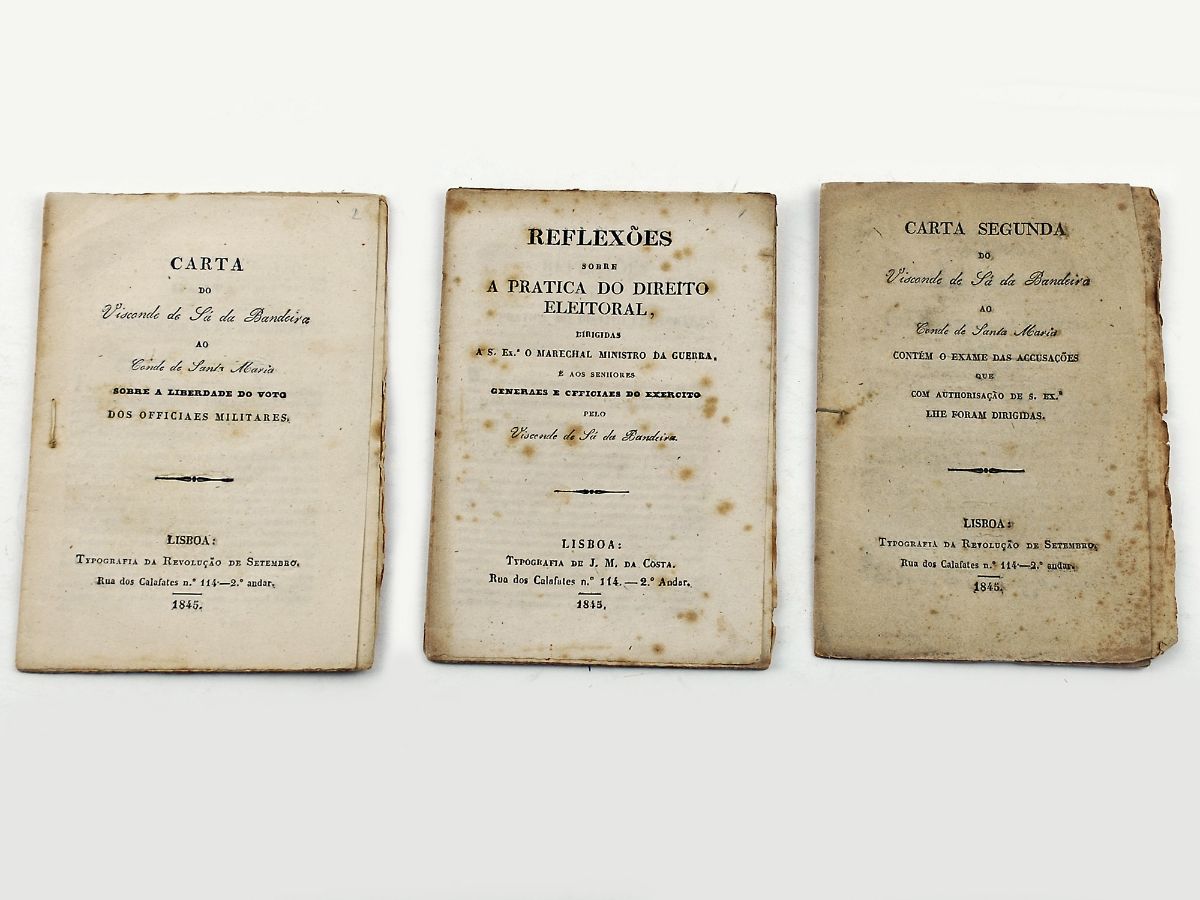 2
CARTA
DO
Visconde de Sá da Bandeira
AO
Conde de Santa Maria
SOBRE A LIBERDADE DO VOTO
DOS OFFICIAES MILITARES.
LISBOA:
TYPOGRAFIA DA REVOLUÇÃO DE SETEMBRO,
Rua dos Calafates n.º 114—2.º andar.
1845.
REFLEXÕES
SOBRE
A PRATICA DO DIREITO
ELEITORAL,
DIRIGIDAS
A S. Ex.ª O MARECHAL MINISTRO DA GUERRA,
E AOS SENHORES
GENERAES E OFFICIAES DO EXERCITO
PELO
Visconde de Sá da Bandeira.
LISBOA:
TYPOGRAFIA DE J. M. DA COSTA.
Rua dos Calafates n.º 114.—2.º Andar.
1845.
CARTA SEGUNDA
DO
Visconde de Sá da Bandeira
AO
Conde de Santa Maria
CONTÉM O EXAME DAS ACCUSAÇÕES
QUE
COM AUTHORISAÇÃO DE S. EX.ª
LHE FORAM DIRIGIDAS.
LISBOA:
TYPOGRAFIA DA REVOLUÇÃO DE SETEMBRO,
Rua dos Calafates n.º 114—2.º andar.
1845.